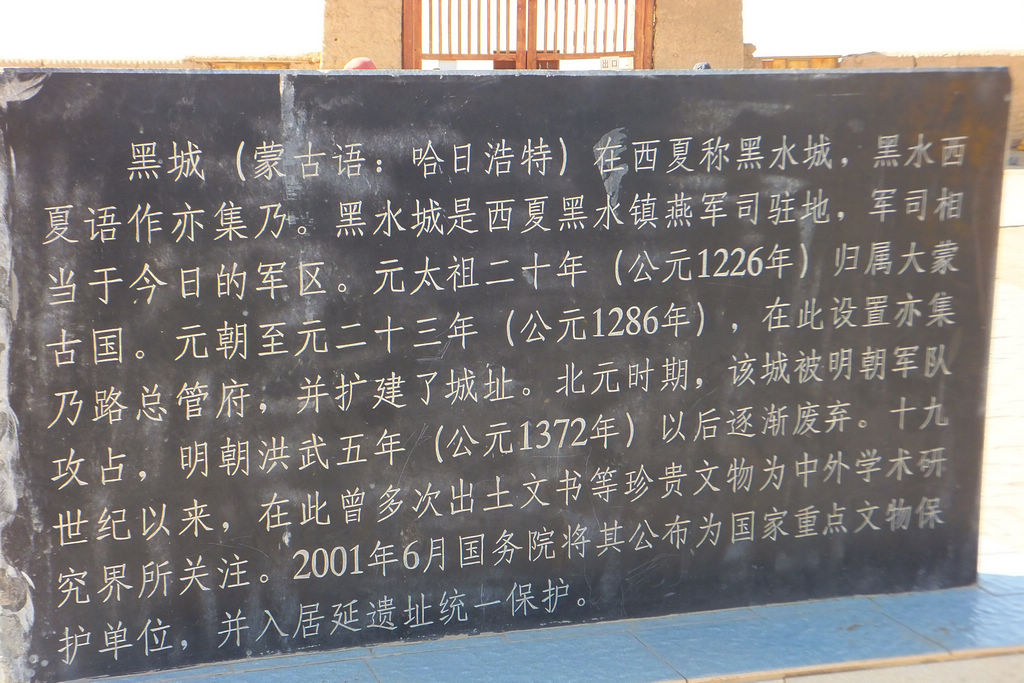 出口
黑城（蒙古语：哈日浩特）在西夏称黑水城，黑水西
夏语作亦集乃。黑水城是西夏黑水镇燕军司驻地，军司相
当于今日的军区。元太祖二十年（公元1226年）归属大蒙
古国。元朝至元二十三年（公元1286年），在此设置亦集
乃路总管府，并扩建了城址。北元时期，该城被明朝军队
攻占，明朝洪武五年（公元1372年）以后逐渐废弃。十九
世纪以来，在此曾多次出土文书等珍贵文物为中外学术研
究界所关注。2001年6月国务院将其公布为国家重点文物保
护单位，并入居延遗址统一保护。